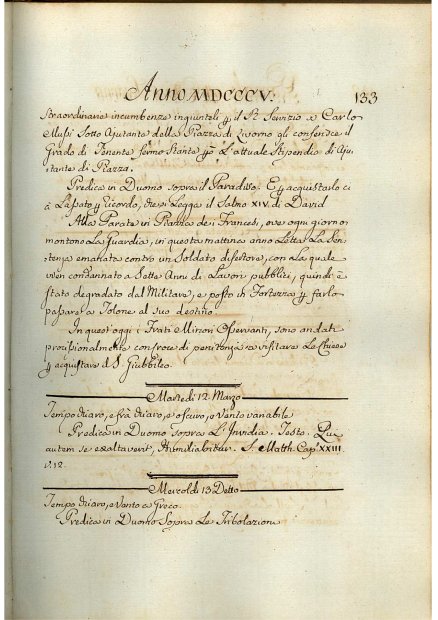 Anno MDCCCV. 133
Straordinarie incumbenze inquinteli p il Rl Servizio a Carlo
Mussi Sotto Ajutante della Piazza di Livorno gli conferisce il
Grado di Tenente fermo stante però l'attuale Stipendio di Aju-
tante di Piazza.
Predica in Duomo sopra il Paradiso. E p acquistarlo ci
à Lasciato p ricordo, che si Legga il Salmo XIV. di David
Alla Parata in Piazza dei Francesi, ove ogni giorno si
montono La Guardia, in questa mattina anno Letta La Sen-
tenza emanata contro un Soldato disertore, con La quale
vien condannato a Sette Anni di Lavori pubblici, quindi è
stato degradato dal Militare, e posto in Fortezza p farlo
passare a Tolone al suo destino.
In quest'oggi i Frati Minori Osservanti, sono andati
provisionalmente con croce di penitenza a visitare Le Chiese
p acquistare il S. Giubbileo.
Martedi 12 Marzo
Tempo chiaro, e frà chiaro, e oscuro, e Vento variabile
Predica in Duomo sopra L'Invidia. Testo. Qui
autem se exaltaverit, Humiliabitur. S. Matth. Cap. XXIII.
v. 12.
Mercoldi 13 Detto
Tempo chiaro, e Vento a Greco.
Predica in Duomo Sopra Le Tribolazioni